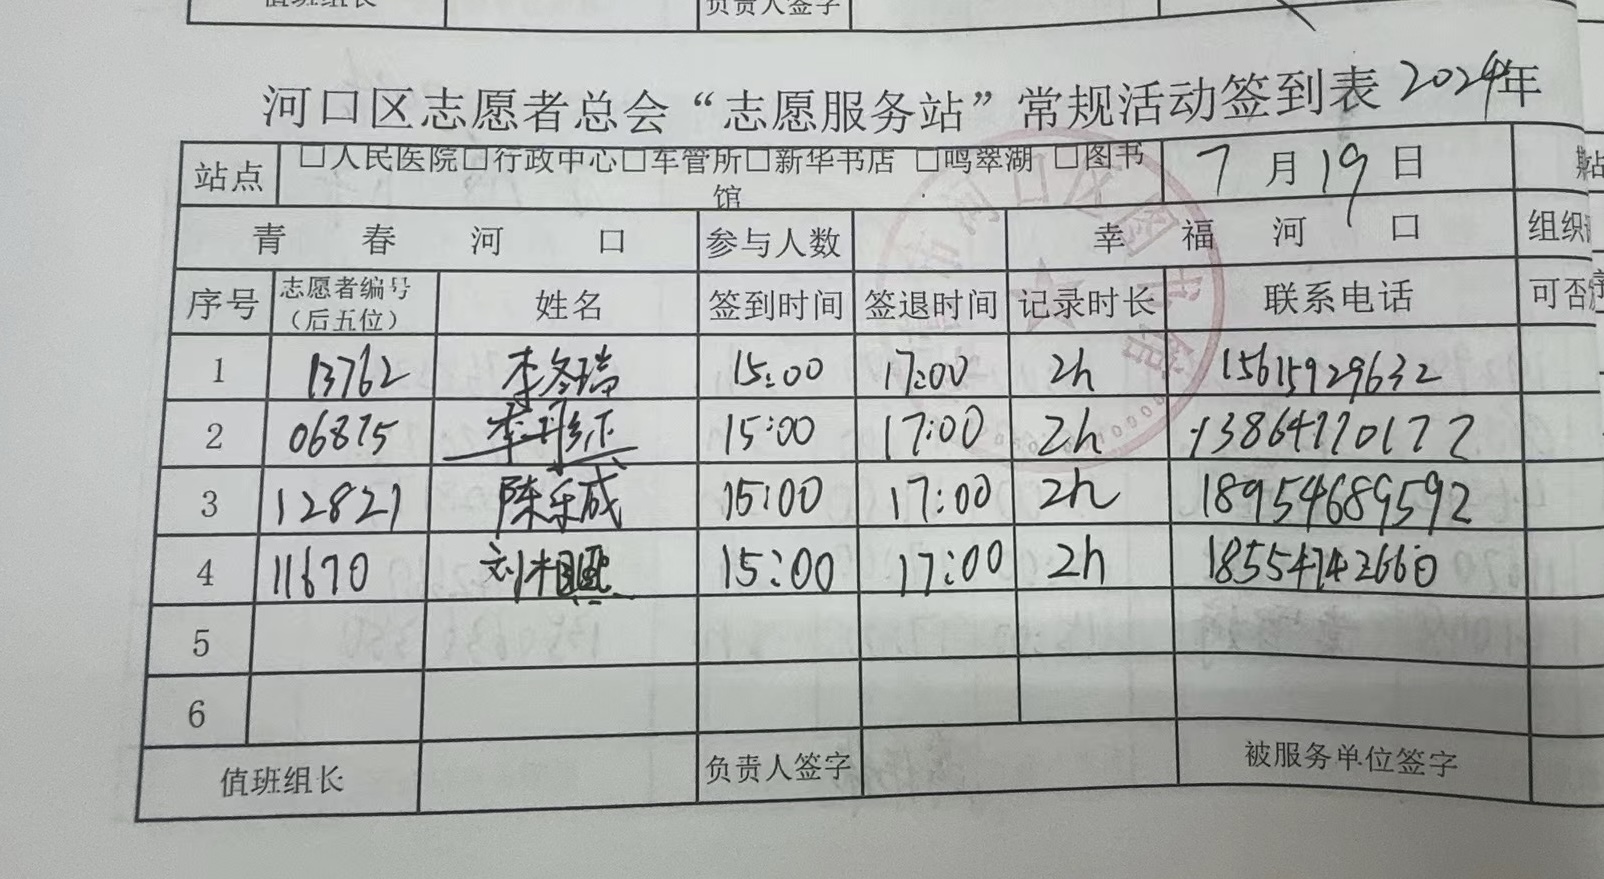 值班组长 负责人签字
河口区志愿者总会“志愿服务站”常规活动签到表 2024年
站点 □人民医院□行政中心□车管所□新华书店 □鸣翠湖 □图书馆 7月19日
青春河口 参与人数 幸福河口 组织
序号 志愿者编号（后五位） 姓名 签到时间 签退时间 记录时长 联系电话 可否
1 13762 李冬瑞 15:00 17:00 2h 15615929632
2 06875 15:00 17:00 2h 13864770177
3 12821 陈乐成 15:00 17:00 2h 18954689592
4 11670 刘 15:00 17:00 2h 18554742660
5
6
值班组长 负责人签字 被服务单位签字